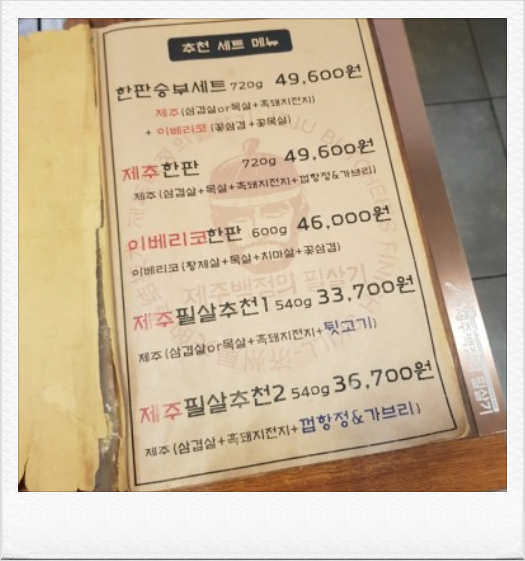 추천 세트 메뉴
한판승부세트 720g 49,600원
제주(삼겹살or목살+흑돼지전지)
+ 이베리코(꽃삼겹+꽃목살)
제주한판 720g 49,600원
제주(삼겹살+목살+흑돼지전지+껍항정&가브리)
이베리코한판 600g 46,000원
이베리코(황제살+목살+치마살+꽃삼겹)
제주백정의 필살기
제주필살추천1 540g 33,700원
제주(삼겹살or목살+흑돼지전지+뒷고기)
제주필살추천2 540g 36,700원
제주(삼겹살+흑돼지전지+껍항정&가브리)